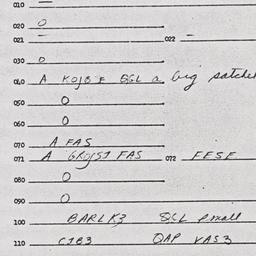 010 —
020 O
021 — 022 —
030 O
040 A KOJB F SGL a big satchel
050 O
060 O
070 A FAS
071 A GROJSJ FAS 072 FESF
080 O
090 O
100 BARLK3 SGL small
110 CJB3 OAP VAS3